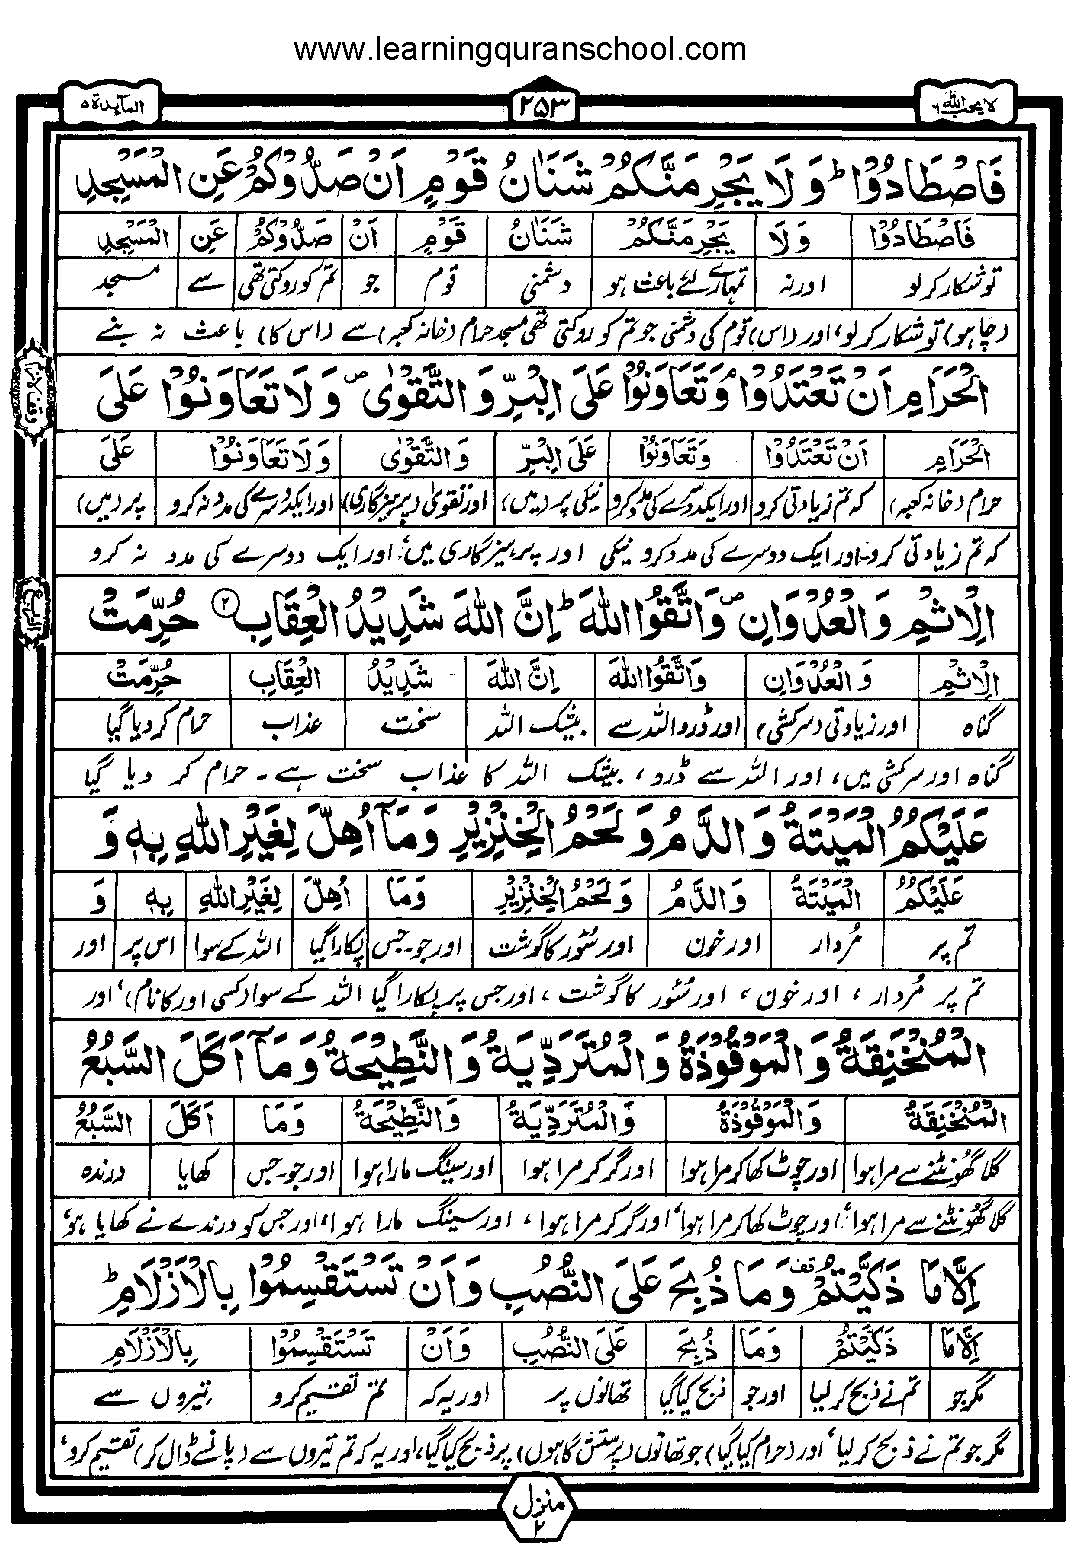 www.learningquranschool.com
لا يحب الله ٦
٢٥٣
المآىِٕدة ٥
فَاصْطَادُوْا ؕ وَلَا يَجْرِمَنَّكُمْ شَنَاٰنُ قَوْمٍ اَنْ صَدُّوْكُمْ عَنِ الْمَسْجِدِ
فَاصْطَادُوْا وَلَا يَجْرِمَنَّكُمْ شَنَاٰنُ قَوْمٍ اَنْ صَدُّوْكُمْ عَنِ الْمَسْجِدِ
تو شکار کرلو اور نہ تمہارے لئے باعث ہو دشمنی قوم جو تم کو روکتی تھی سے مسجد
(چاہو) تو شکار کرلو، اور (اس) قوم کی دشمنی جو تم کو روکتی تھی مسجد حرام (خانہ کعبہ) سے (اس کا) باعث نہ بنے
الْحَرَامِ اَنْ تَعْتَدُوْا ۘ وَتَعَاوَنُوْا عَلَى الْبِرِّ وَالتَّقْوٰى ۪ وَلَا تَعَاوَنُوْا عَلَى
الْحَرَامِ اَنْ تَعْتَدُوْا وَتَعَاوَنُوْا عَلَى الْبِرِّ وَالتَّقْوٰى وَلَا تَعَاوَنُوْا عَلَى
حرام (خانہ کعبہ) کہ تم زیادتی کرو اور ایک دوسرے کی مدد کرو نیکی پر (میں) اور تقویٰ (پرہیزگاری) اور ایک دوسرے کی مدد نہ کرو پر (میں)
کہ تم زیادتی کرو، اور ایک دوسرے کی مدد کرو نیکی اور پرہیزگاری میں، اور ایک دوسرے کی مدد نہ کرو
الْاِثْمِ وَالْعُدْوَانِ ۪ وَاتَّقُوا اللّٰهَ ؕ اِنَّ اللّٰهَ شَدِيْدُ الْعِقَابِ ۝٢ حُرِّمَتْ
الْاِثْمِ وَالْعُدْوَانِ وَاتَّقُوا اللّٰهَ اِنَّ اللّٰهَ شَدِيْدُ الْعِقَابِ حُرِّمَتْ
گناہ اور زیادتی (سرکشی) اور ڈرو اللہ سے بیشک اللہ سخت عذاب حرام کردیا گیا
گناہ اور سرکشی میں، اور اللہ سے ڈرو، بیشک اللہ کا عذاب سخت ہے۔ حرام کر دیا گیا
عَلَيْكُمُ الْمَيْتَةُ وَالدَّمُ وَلَحْمُ الْخِنْزِيْرِ وَمَاۤ اُهِلَّ لِغَيْرِ اللّٰهِ بِهٖ وَ
عَلَيْكُمُ الْمَيْتَةُ وَالدَّمُ وَلَحْمُ الْخِنْزِيْرِ وَمَا اُهِلَّ لِغَيْرِ اللّٰهِ بِهٖ وَ
تم پر مُردار اور خون اور سُور کا گوشت اور جو۔ جس پکارا گیا اللہ کے سوا اس پر اور
تم پر مُردار، اور خون، اور سُور کا گوشت، اور جس پر پکارا گیا اللہ کے سوا (کسی اور کا نام)، اور
الْمُنْخَنِقَةُ وَالْمَوْقُوْذَةُ وَالْمُتَرَدِّيَةُ وَالنَّطِيْحَةُ وَمَاۤ اَكَلَ السَّبُعُ
الْمُنْخَنِقَةُ وَالْمَوْقُوْذَةُ وَالْمُتَرَدِّيَةُ وَالنَّطِيْحَةُ وَمَا اَكَلَ السَّبُعُ
گلا گھونٹنے سے مرا ہوا اور چوٹ کھاکر مرا ہوا اور گر کر مرا ہوا اور سینگ مارا ہوا اور جو۔ جس کھایا درندہ
گلا گھونٹنے سے مرا ہوا، اور چوٹ کھاکر مرا ہوا، اور گر کر مرا ہوا، اور سینگ مارا ہوا، اور جس کو درندے نے کھایا ہو،
اِلَّا مَا ذَكَّيْتُمْ ۫ وَمَا ذُبِحَ عَلَى النُّصُبِ وَاَنْ تَسْتَقْسِمُوْا بِالْاَزْلَامِ ؕ
اِلَّا مَا ذَكَّيْتُمْ وَمَا ذُبِحَ عَلَى النُّصُبِ وَاَنْ تَسْتَقْسِمُوْا بِالْاَزْلَامِ
مگر جو تم نے ذبح کر لیا اور جو ذبح کیا گیا تھانوں پر اور یہ کہ تم تقسیم کرو تیروں سے
مگر جو تم نے ذبح کرلیا، اور (حرام کیا گیا) جو تھانوں (پرستش گاہوں) پر ذبح کیا گیا، اور یہ کہ تم تیروں سے (پانسے ڈال کر) تقسیم کرو،
منزل ٢